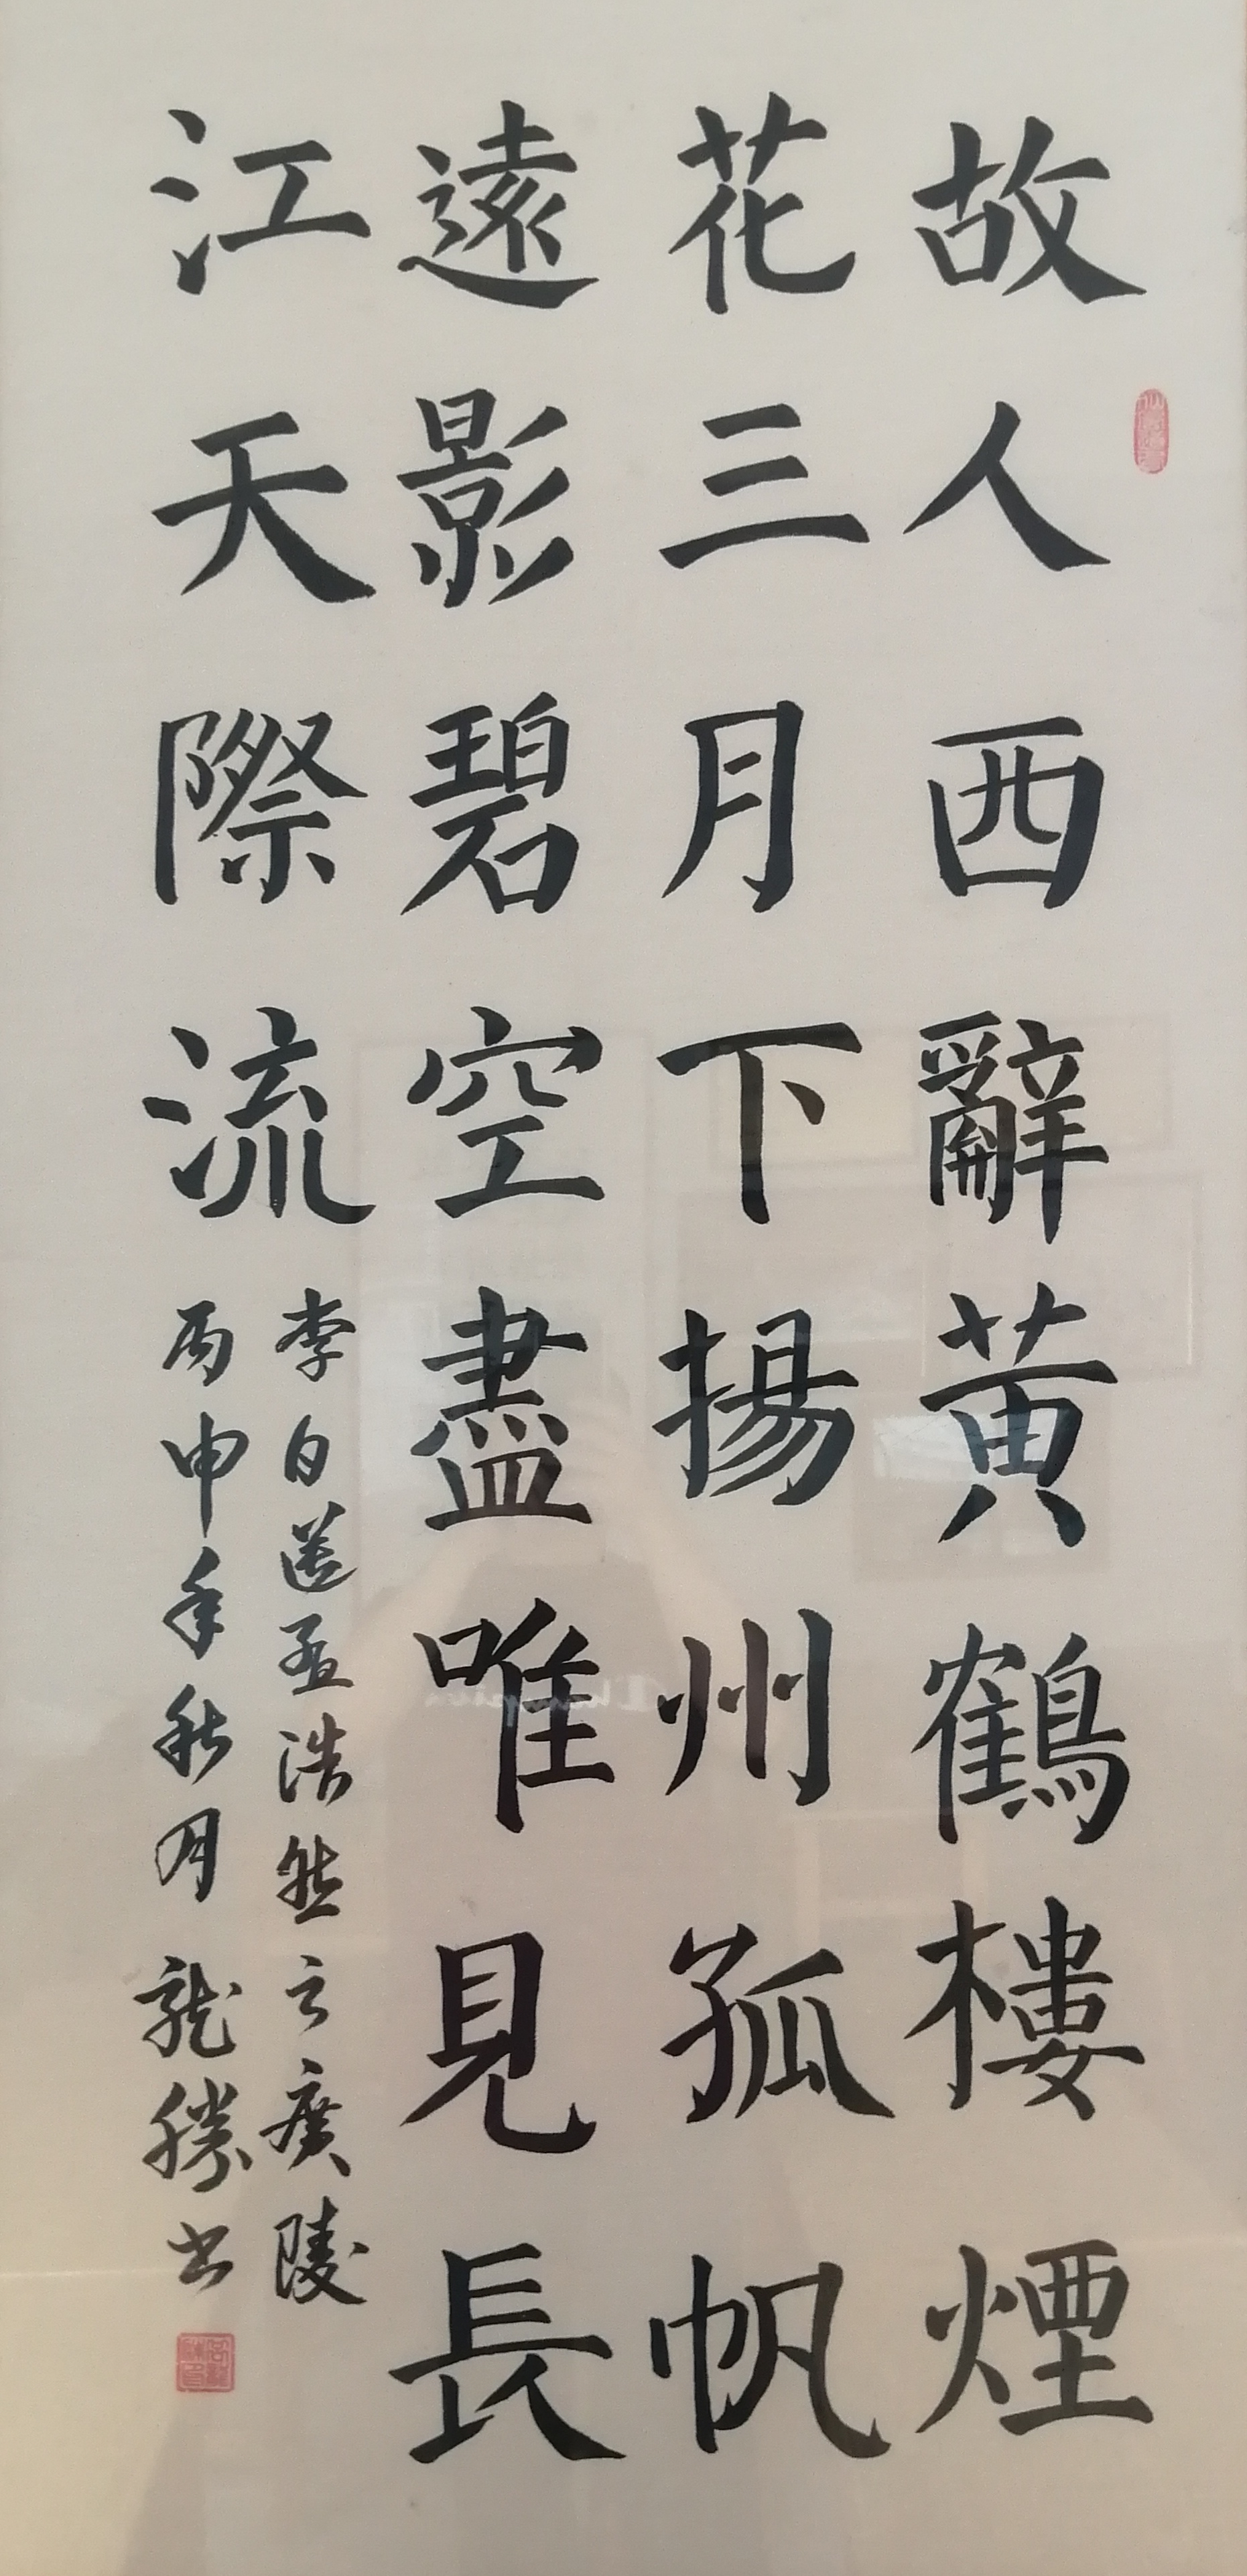 故人西辭黃鶴樓煙
花三月下揚州孤帆
遠影碧空盡唯見長
江天際流
李白送孟浩然之廣陵
丙申年秋月龍勝书